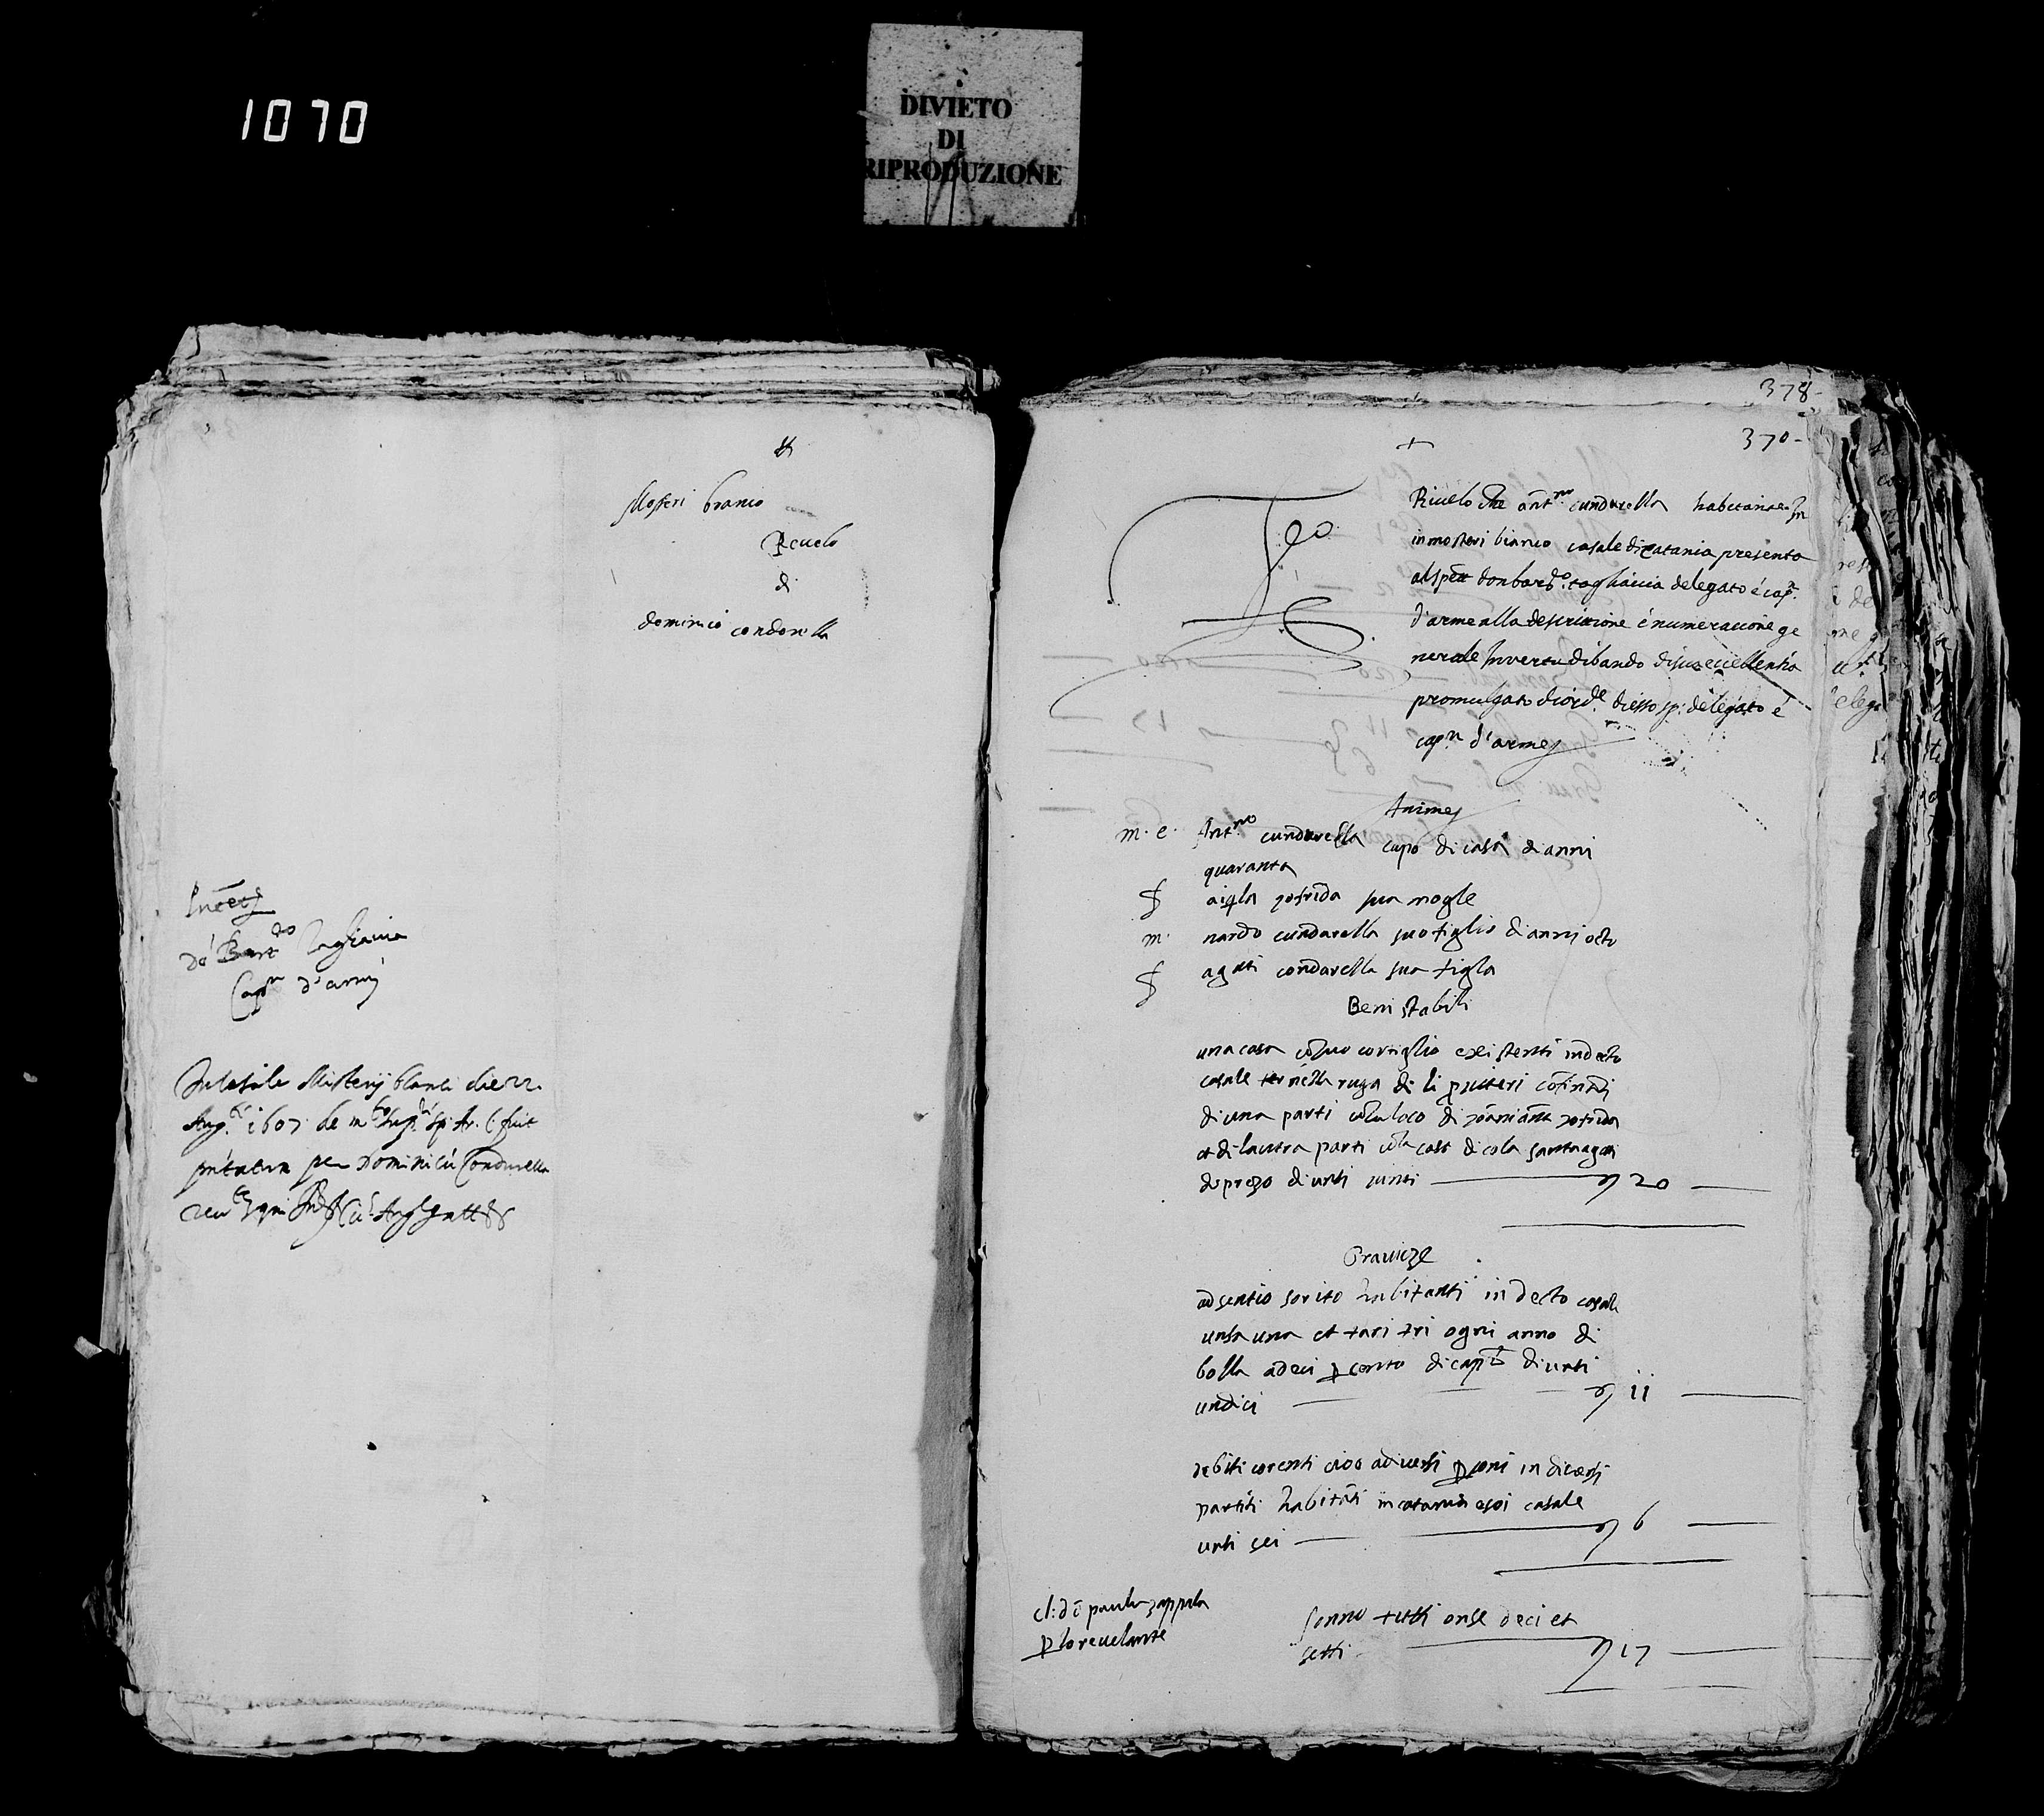 1070
DIVIETO
DI
RIPRODUZIONE
Mosteri bianco
Rевelo
di
dominico condorella
de Bart.do Tagliavia
Cap.n d'armi
In Casale Misterij blanci die 22
Aug.ti 1607 de m.to sup.ti sp. fuit
per Dominicu Condurella
378
370
+
Rivelo che ant.no cundurella habitante In
in mosteri bianco casale di catania presenta
al spett don bardo. tagliavia delegato é cap.
d'arme alla descrizione é numeracione ge
nerale In vertu di bando di sua eccellentia
promulgato di ord.e di esso sp: delegato é
cap.n d'arme
Anime
m. c. Ant.no cundurella capo di casa di anni
quaranta
f aigla gofrida sua mogle
m. nardo cundurella suo figlio di anni octo
f agati condurella sua figla
Beni stabili
una casa co suo cortiglio existenti in decto
casale nella ruga di li pulteri cofinati
di una parti cu lu loco di gofrida
et di lautra parti cu la casa di cola santaagati
de prezo di unti vinti 20
Gravicze
ad sentio sorito habitanti in decto casale
unsa una et tari tri ogni anno di
bolla a deci p cento di cap.li di unti
undici 11
debiti correnti cioe a diversi p.soni in diversi
partiti habitati in catania e soi casale
unti sei 6
cl: do paulu zappala
p lo revelante
sonno tutti onse deci et
setti 17